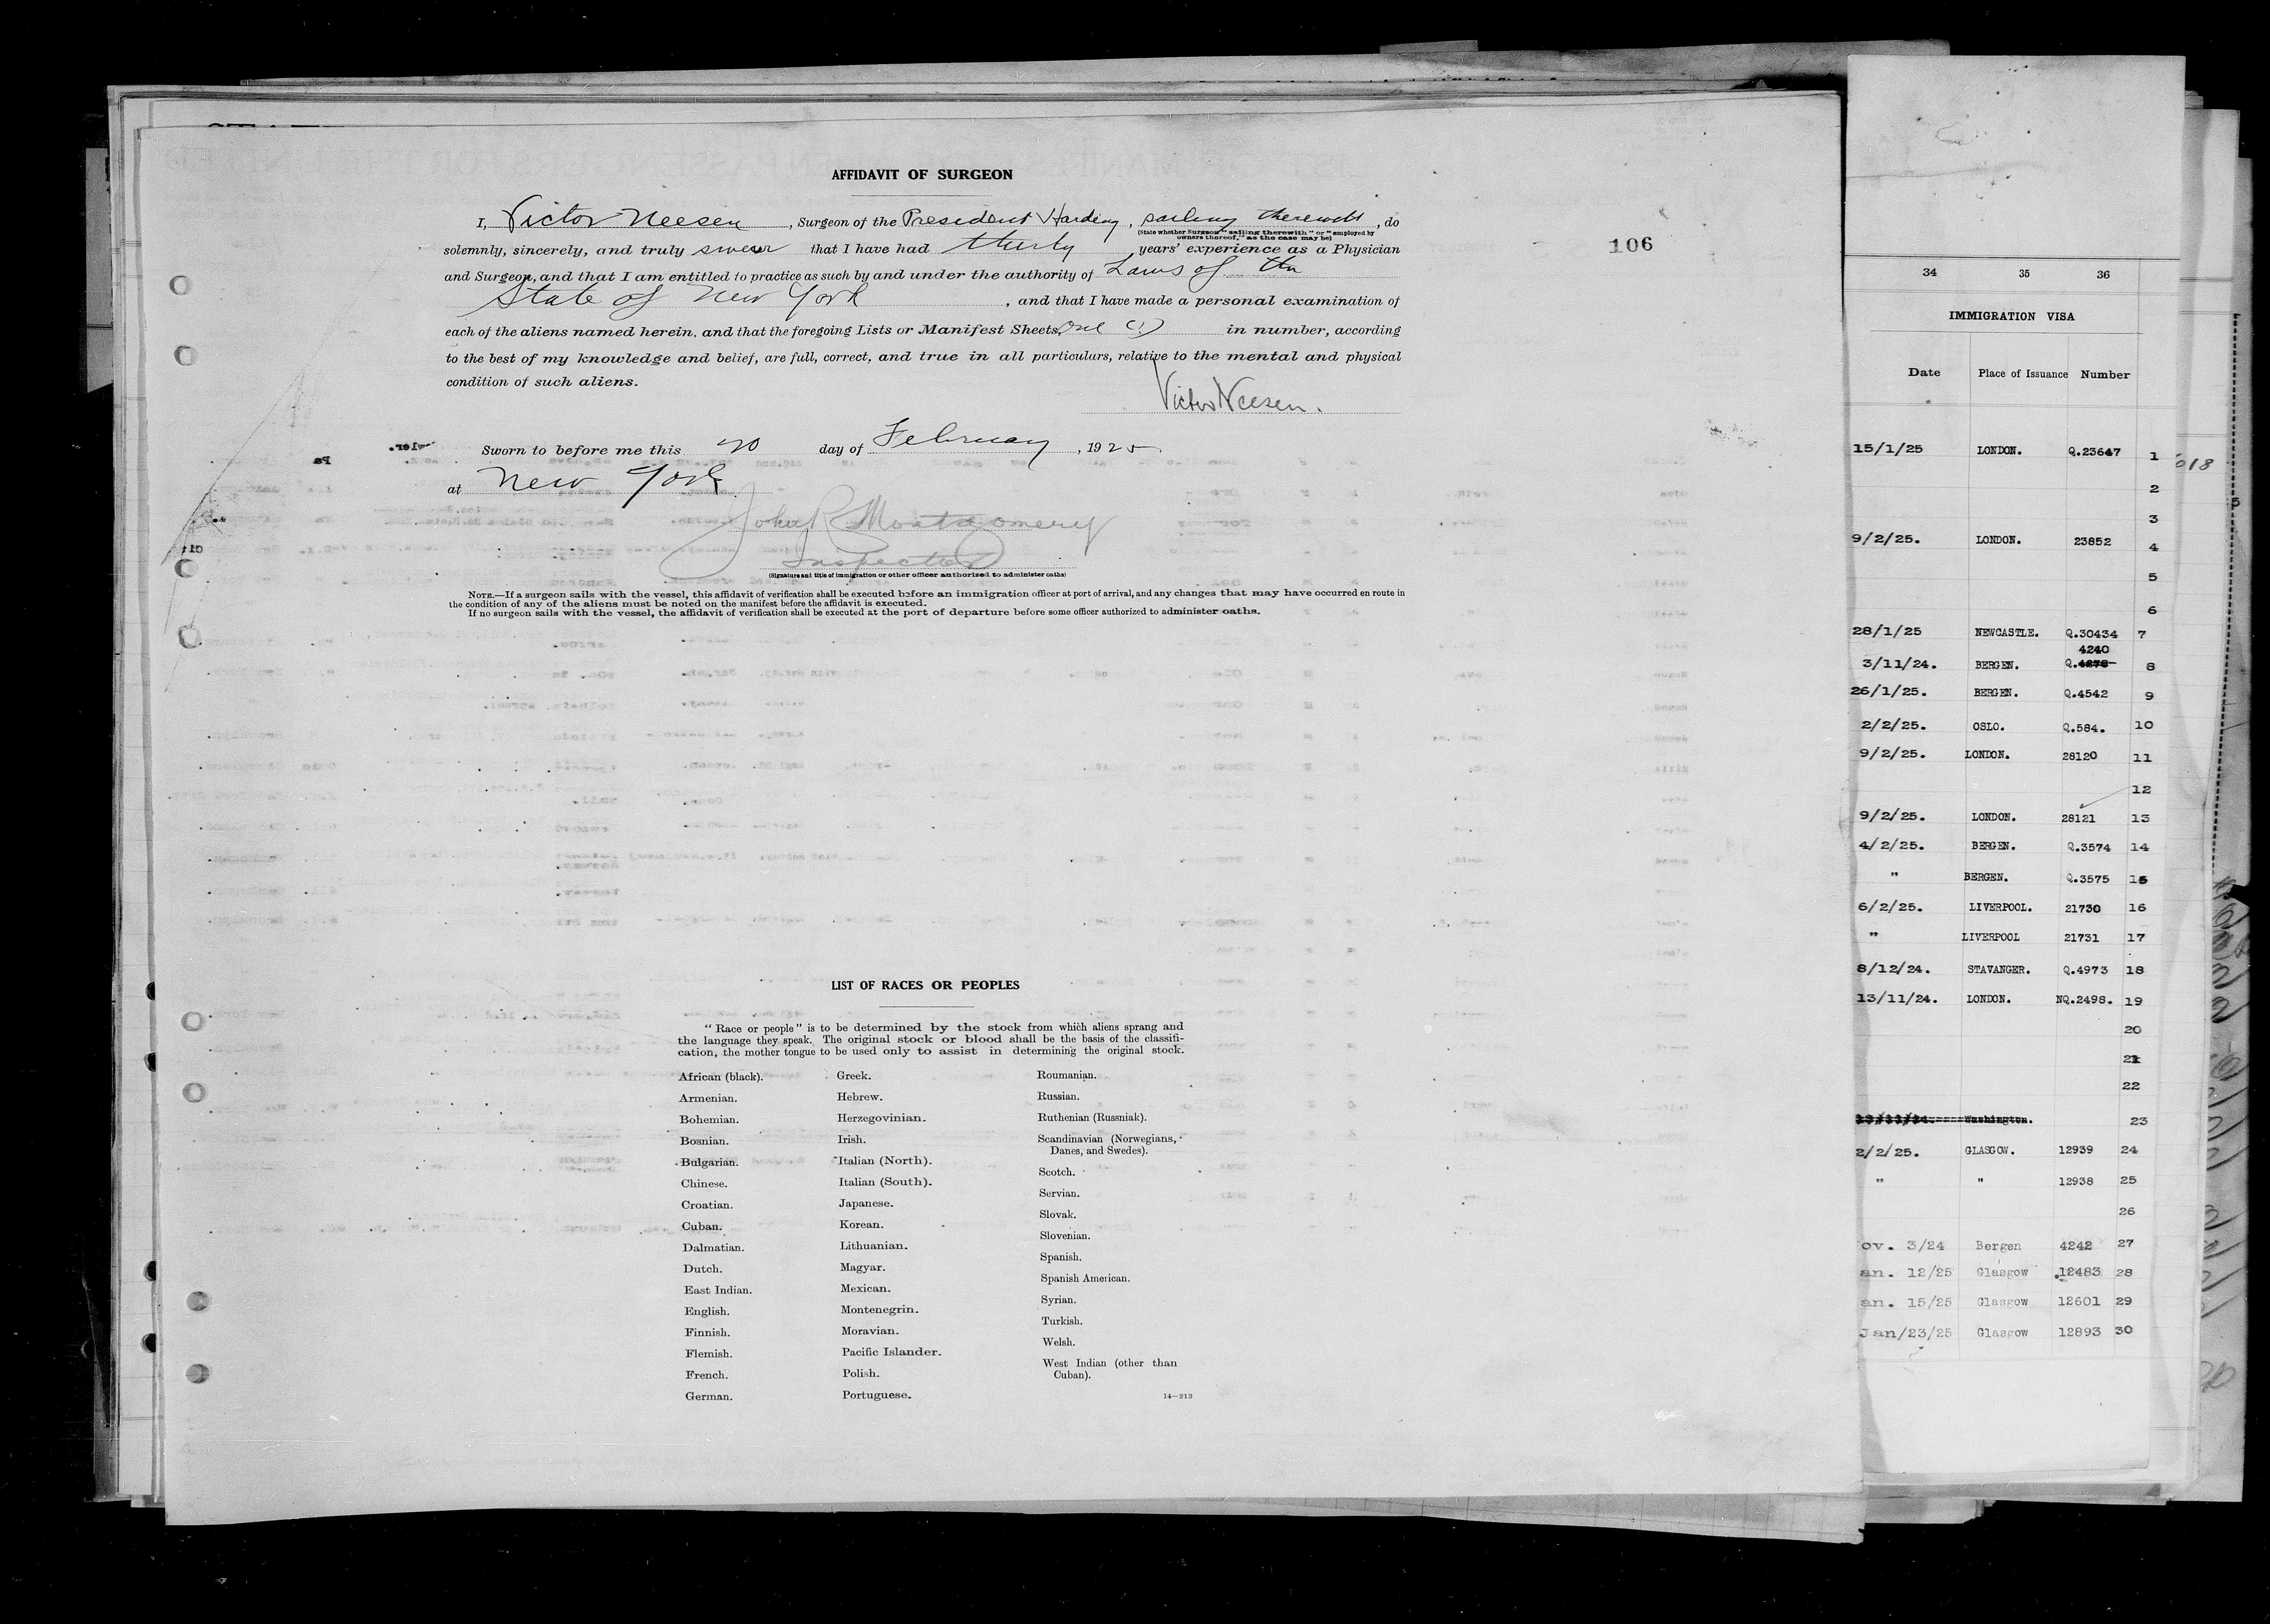 AFFIDAVIT OF SURGEON
I, Victor Neesen, Surgeon of the President Harding, sailing therewith, do
(State whether Surgeon "sailing therewith" or "employed by
owners thereof," as the case may be)
solemnly, sincerely, and truly swear that I have had thirty years' experience as a Physician
and Surgeon, and that I am entitled to practice as such by and under the authority of Laws of the
State of New York, and that I have made a personal examination of
each of the aliens named herein, and that the foregoing Lists or Manifest Sheets, One (1) in number, according
to the best of my knowledge and belief, are full, correct, and true in all particulars, relative to the mental and physical
condition of such aliens.
Victor Neesen.
Sworn to before me this 20 day of February, 1925
at New York
John R Montgomery
Inspector
(Signature and title of immigration or other officer authorized to administer oaths)
NOTE.—If a surgeon sails with the vessel, this affidavit of verification shall be executed before an immigration officer at port of arrival, and any changes that may have occurred en route in
the condition of any of the aliens must be noted on the manifest before the affidavit is executed.
If no surgeon sails with the vessel, the affidavit of verification shall be executed at the port of departure before some officer authorized to administer oaths.
106
LIST OF RACES OR PEOPLES
"Race or people" is to be determined by the stock from which aliens sprang and
the language they speak. The original stock or blood shall be the basis of the classifi-
cation, the mother tongue to be used only to assist in determining the original stock.
African (black).
Armenian.
Bohemian.
Bosnian.
Bulgarian.
Chinese.
Croatian.
Cuban.
Dalmatian.
Dutch.
East Indian.
English.
Finnish.
Flemish.
French.
German.
Greek.
Hebrew.
Herzegovinian.
Irish.
Italian (North).
Italian (South).
Japanese.
Korean.
Lithuanian.
Magyar.
Mexican.
Montenegrin.
Moravian.
Pacific Islander.
Polish.
Portuguese.
Roumanian.
Russian.
Ruthenian (Russniak).
Scandinavian (Norwegians,
Danes, and Swedes).
Scotch.
Servian.
Slovak.
Slovenian.
Spanish.
Spanish American.
Syrian.
Turkish.
Welsh.
West Indian (other than
Cuban).
14—213
34 35 36
IMMIGRATION VISA
Date Place of Issuance Number
15/1/25 LONDON. Q.23647 1
2
3
9/2/25. LONDON. 23852 4
5
6
28/1/25 NEWCASTLE. Q.30434 7
4240
3/11/24. BERGEN. Q.4278 8
26/1/25. BERGEN. Q.4542 9
2/2/25. OSLO. Q.584. 10
9/2/25. LONDON. 28120 11
12
9/2/25. LONDON. 28121 13
4/2/25. BERGEN. Q.3574 14
" BERGEN. Q.3575 15
6/2/25. LIVERPOOL. 21730 16
" LIVERPOOL 21731 17
8/12/24. STAVANGER. Q.4973 18
13/11/24. LONDON. NQ.2498. 19
20
21
22
Washington. 23
2/2/25. GLASGOW. 12939 24
" " 12938 25
26
ov. 3/24 Bergen 4242 27
an. 12/25 Glasgow 12483 28
an. 15/25 Glasgow 12601 29
Jan/23/25 Glasgow 12893 30